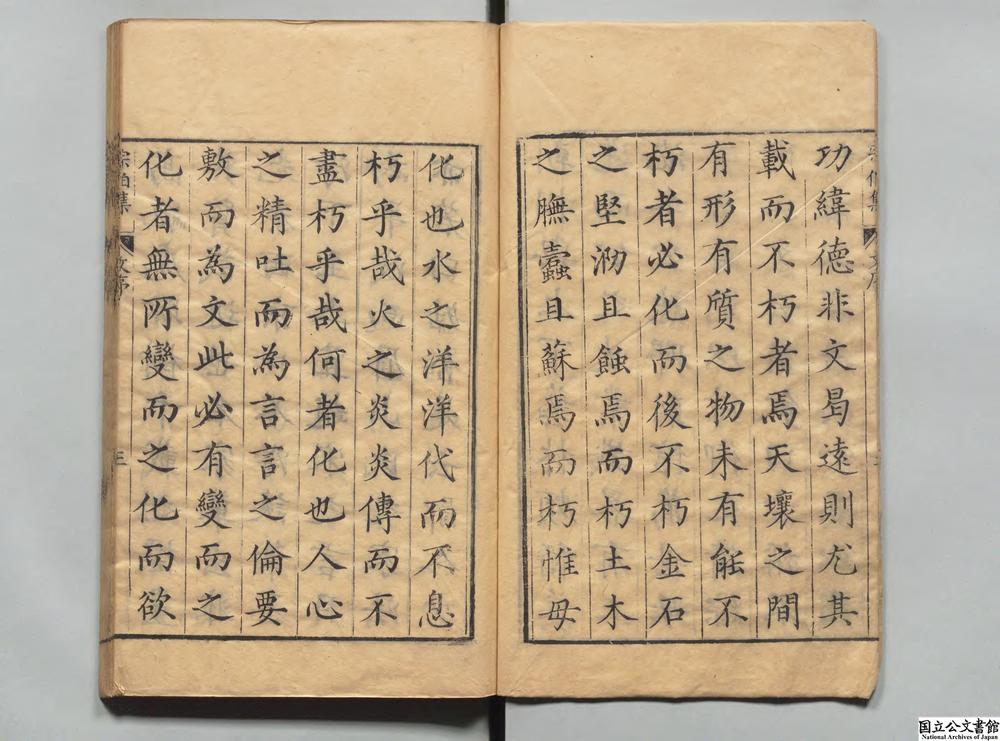 功緯德非文曷遠則尤其
載而不朽者焉天壤之間
有形有質之物未有能不
朽者必化而後不朽金石
之堅泐且蝕焉而朽土木
之膴蠹且蘇焉而朽惟毋
化也水之洋洋代而不息
朽乎哉火之炎炎傳而不
盡朽乎哉何者化也人心
之精吐而為言言之倫要
敷而為文此必有變而之
化者無所變而之化而欲
宗伯集
三
国立公文書館
National Archives of Japan